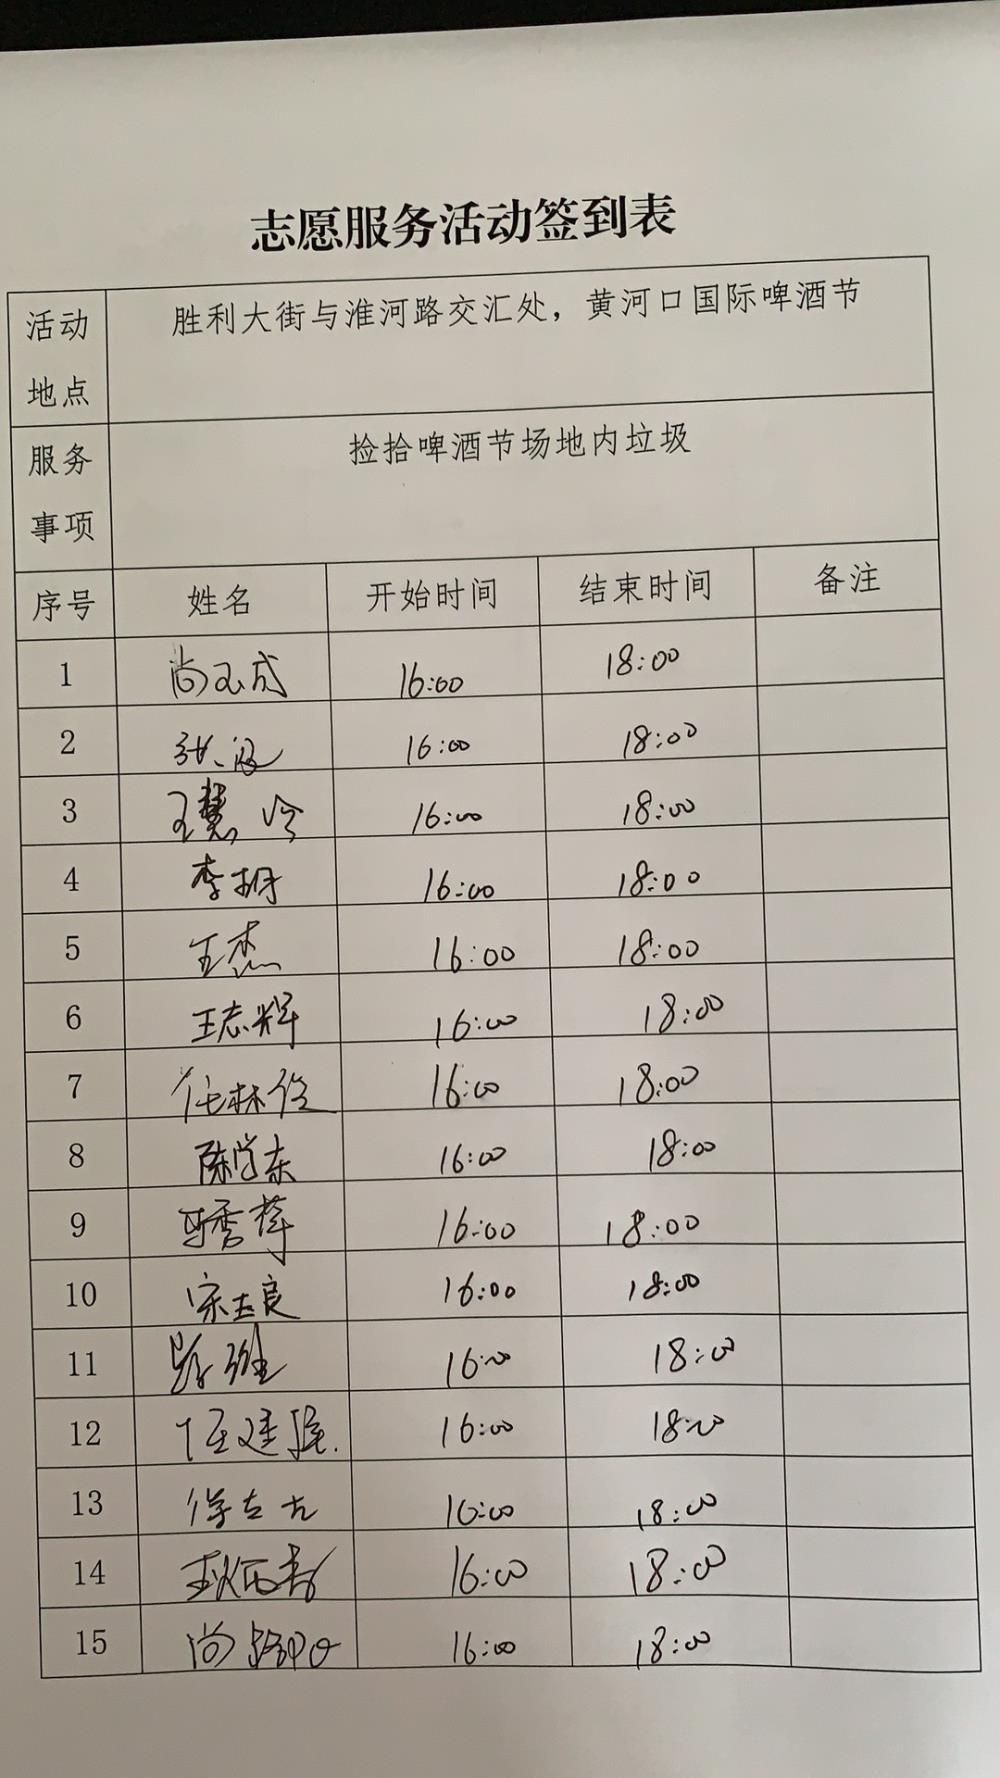 志愿服务活动签到表
活动地点 胜利大街与淮河路交汇处，黄河口国际啤酒节
服务事项 捡拾啤酒节场地内垃圾
序号 姓名 开始时间 结束时间 备注
1 尚玉成 16:00 18:00
2 张 16:00 18:00
3 王慧玲 16:00 18:00
4 李 16:00 18:00
5 王杰 16:00 18:00
6 王志辉 16:00 18:00
7 任林 16:00 18:00
8 陈尚东 16:00 18:00
9 秀萍 16:00 18:00
10 宋玉良 16:00 18:00
11 16:00 18:00
12 任建 16:00 18:00
13 16:00 18:00
14 16:00 18:00
15 尚 16:00 18:00